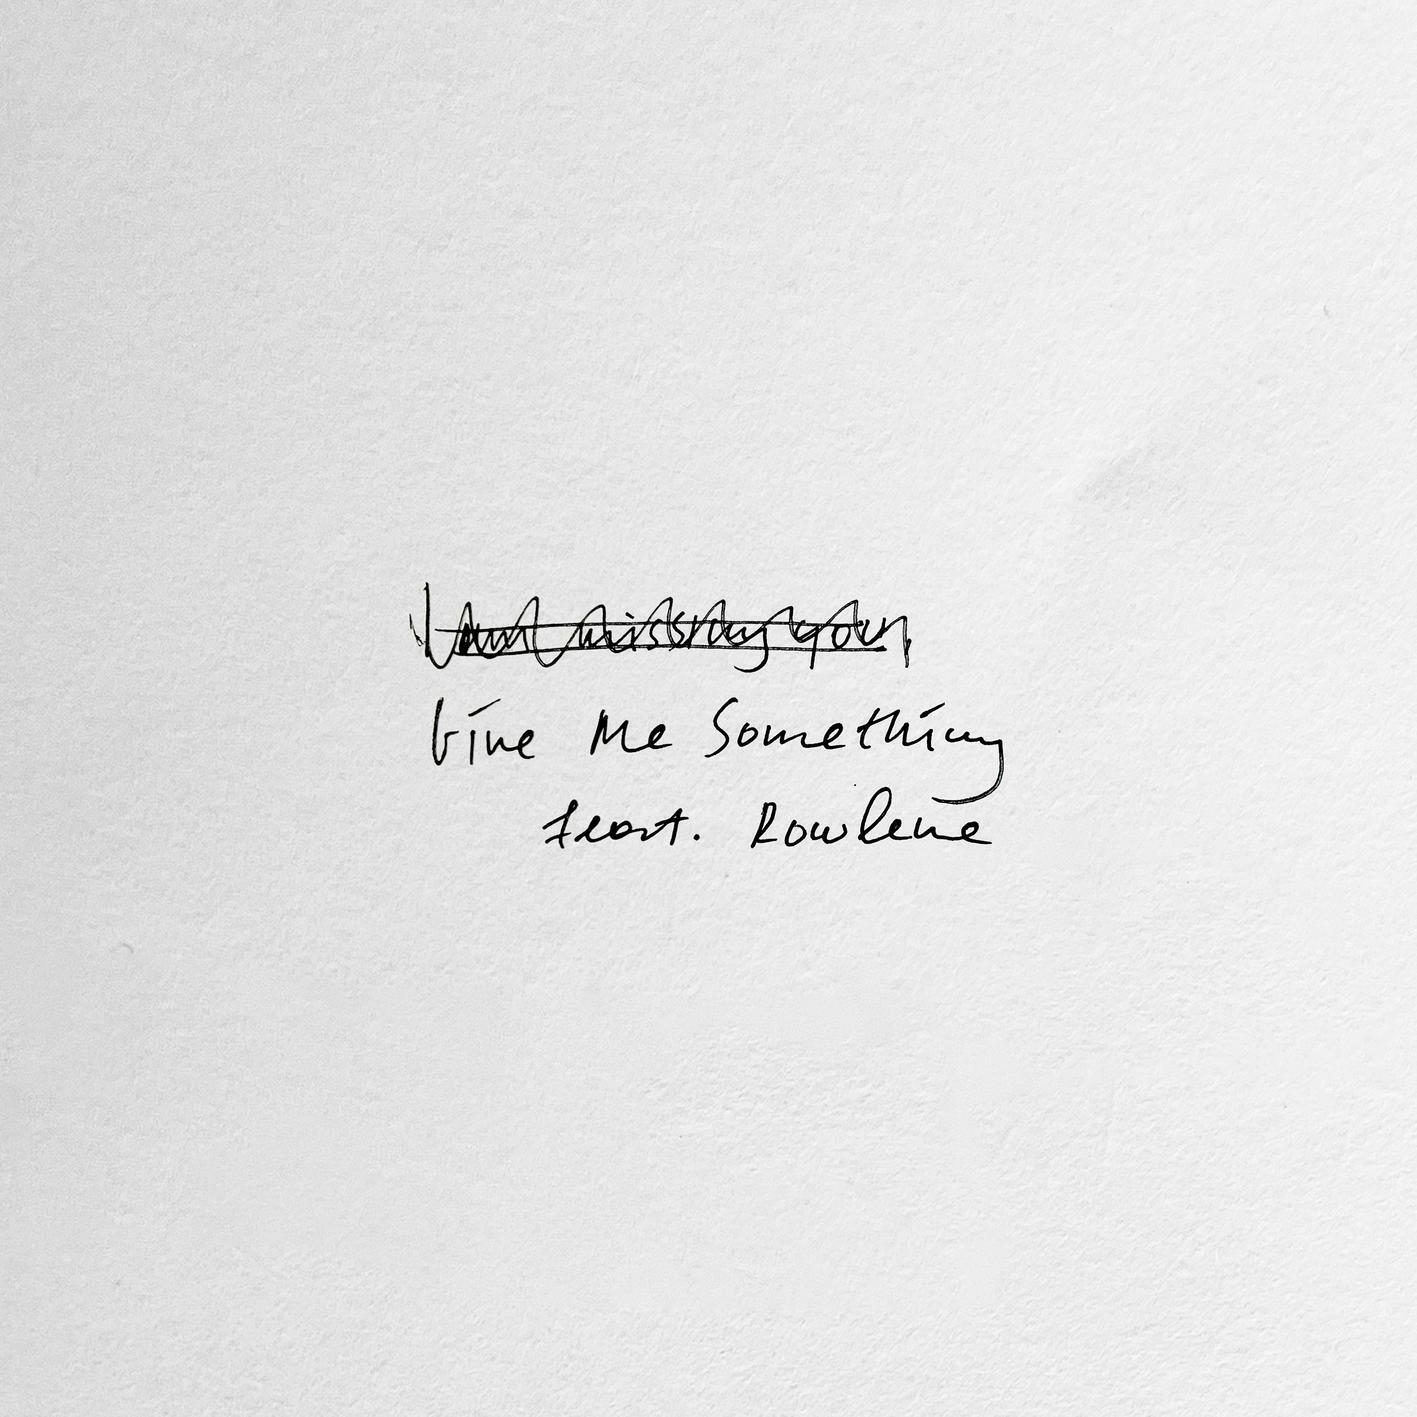 I am missing you
Give Me Something
feat. Rowlene